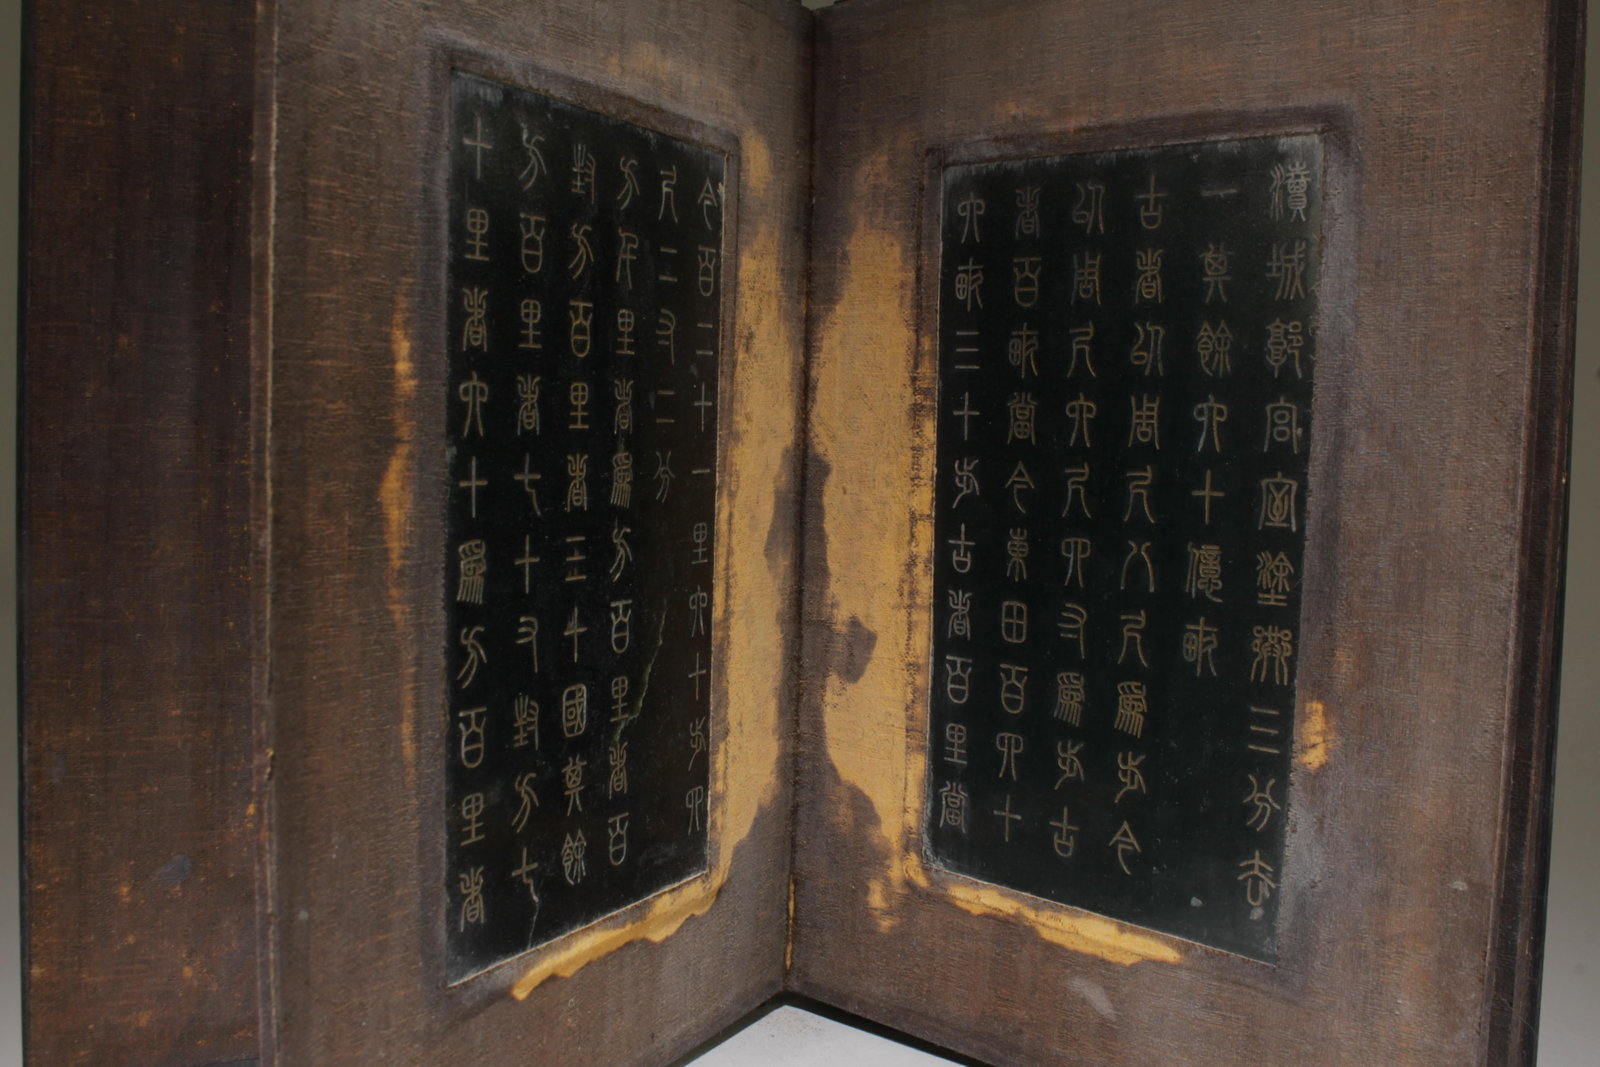 瀆城郭宮室塗巷三分去
一其餘六十億畝
古者以周尺八尺爲步今
以周尺六尺四寸爲步古
者百畝當今東田百四十
六畝三十步古者百里當
今百二十一里六十步四
尺二寸二分
方千里者爲方百里者百
封方百里者三十國其餘
方百里者七十又封方七
十里者六十爲方百里者